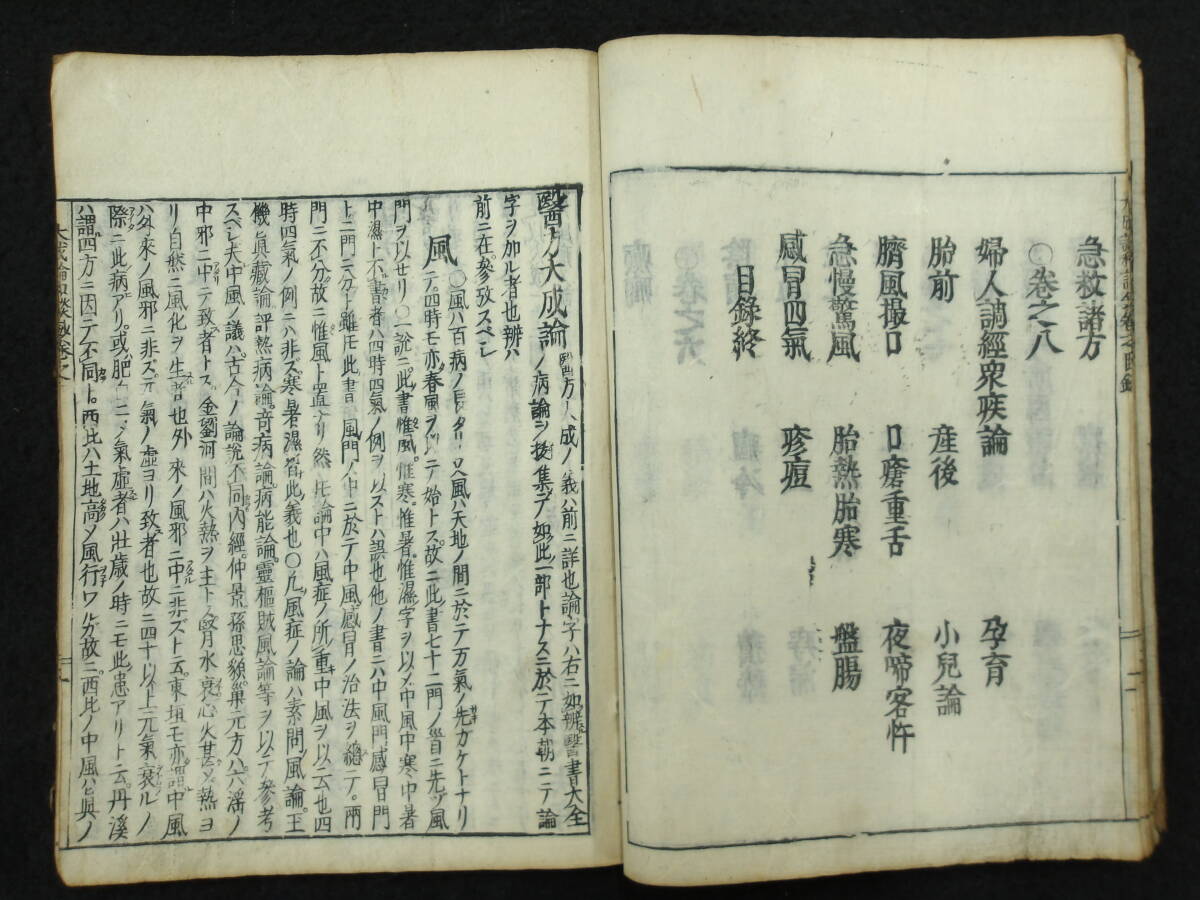 急救諸方
〇卷之八
婦人調經衆疾論　孕育
胎前　産後　小兒論
臍風撮口　口瘡重舌　夜啼客忤
急慢驚風　胎熱胎寒　盤腸
感冒四氣　疹痘
目錄終
醫方大成論　醫方大成ノ義ハ前ニ詳也論ノ字ハ右ニ如辨醫書大全
ノ病論ヲ拔集テ如此一部トナスニ於テ本朝ニテ論
字ヲ加ル者也辨ハ
前ニ在參攷スベシ
風　〇風ハ百病ノ長タリ又風ハ天地ノ間ニ於テ万氣ノ先カケトナリ
テ四時モ亦春風ヲ以テ始トス故ニ此書七十二門ノ首ニ先ヅ風
門ヲ以セリ〇一説ニ此書惟風惟寒惟暑惟濕字ヲ以メ中風中寒中暑
中濕ト不書者ハ四時四氣ノ例ヲ以ストハ誤也他ノ書ニハ中風門感冒門
ト二門ニ分ト雖モ此書風門ノ中ニ於テ中風感冒ノ治法ヲ總テ兩
門ニ不分故ニ惟風ト置ケリ然モ論中ハ風症ノ所重中風ヲ以云也四
時四氣ノ例ニハ非ズ寒暑濕皆此義也〇凡風症ノ論ハ素問風論玉
機眞藏論評熱病論奇病論病能論靈樞賊風論等ヲ以テ參考
スベシ夫中風ノ議ハ古今ノ論說不同內經仲景孫思邈巢元方ハ六淫ノ
中邪ニ中テ致者トス金劉河間ハ火熱ヲ主トメ腎水衰心火甚メ熱ヨ
リ自然ニ風化ヲ生者也外來ノ風邪ニ中ニ非ズト云東垣モ亦謂中風
ハ外來ノ風邪ニ非ズ元氣ノ虛ヨリ致者也故ニ四十以上元氣衰ルノ
際ニ此病アリ或肥白ニメ氣虛者ハ壯歲ノ時ニモ此患アリト云丹溪
ハ謂四方ニ因テ不同ト西北ハ土地高メ風行ワル故ニ西北ノ中風ハ眞ノ